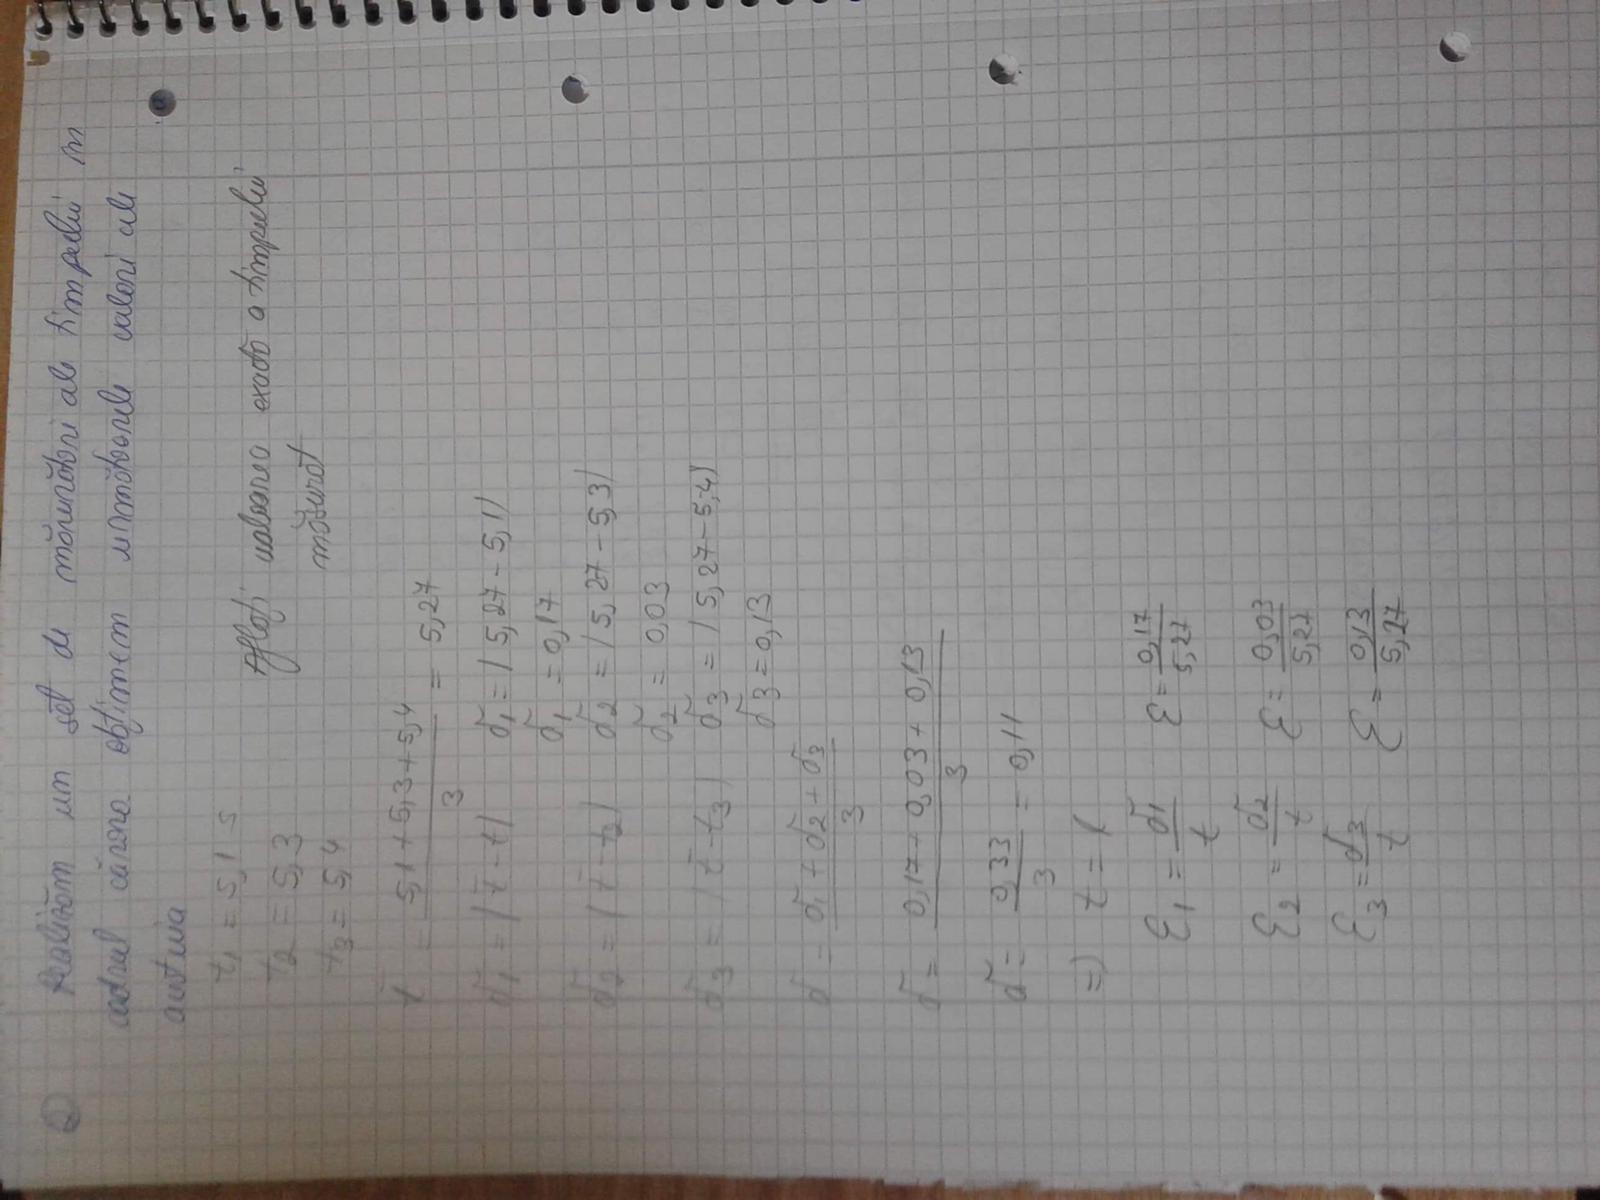 2 Realizăm un set de măsurători ale timpului în
cadrul cărora obținem următoarele valori ale
acestuia
t1 = 5,1 s
t2 = 5,3
t3 = 5,4
Aflați valoarea exactă a timpului
măsurat
t̄ = 5,1+5,3+5,4 / 3 = 5,27
δ1 = |t̄ - t| δ1 = |5,27 - 5,1|
δ1 = 0,17
δ2 = |t̄ - t2| δ2 = |5,27 - 5,3|
δ2 = 0,03
δ3 = |t̄ - t3| δ3 = |5,27 - 5,4|
δ3 = 0,13
δ = δ1 + δ2 + δ3 / 3
δ = 0,17 + 0,03 + 0,13 / 3
δ = 0,33 / 3 = 0,11
=) t =
ε1 = δ1 / t ε = 0,17 / 5,27
ε2 = δ2 / t ε = 0,03 / 5,27
ε3 = δ3 / t ε = 0,13 / 5,27